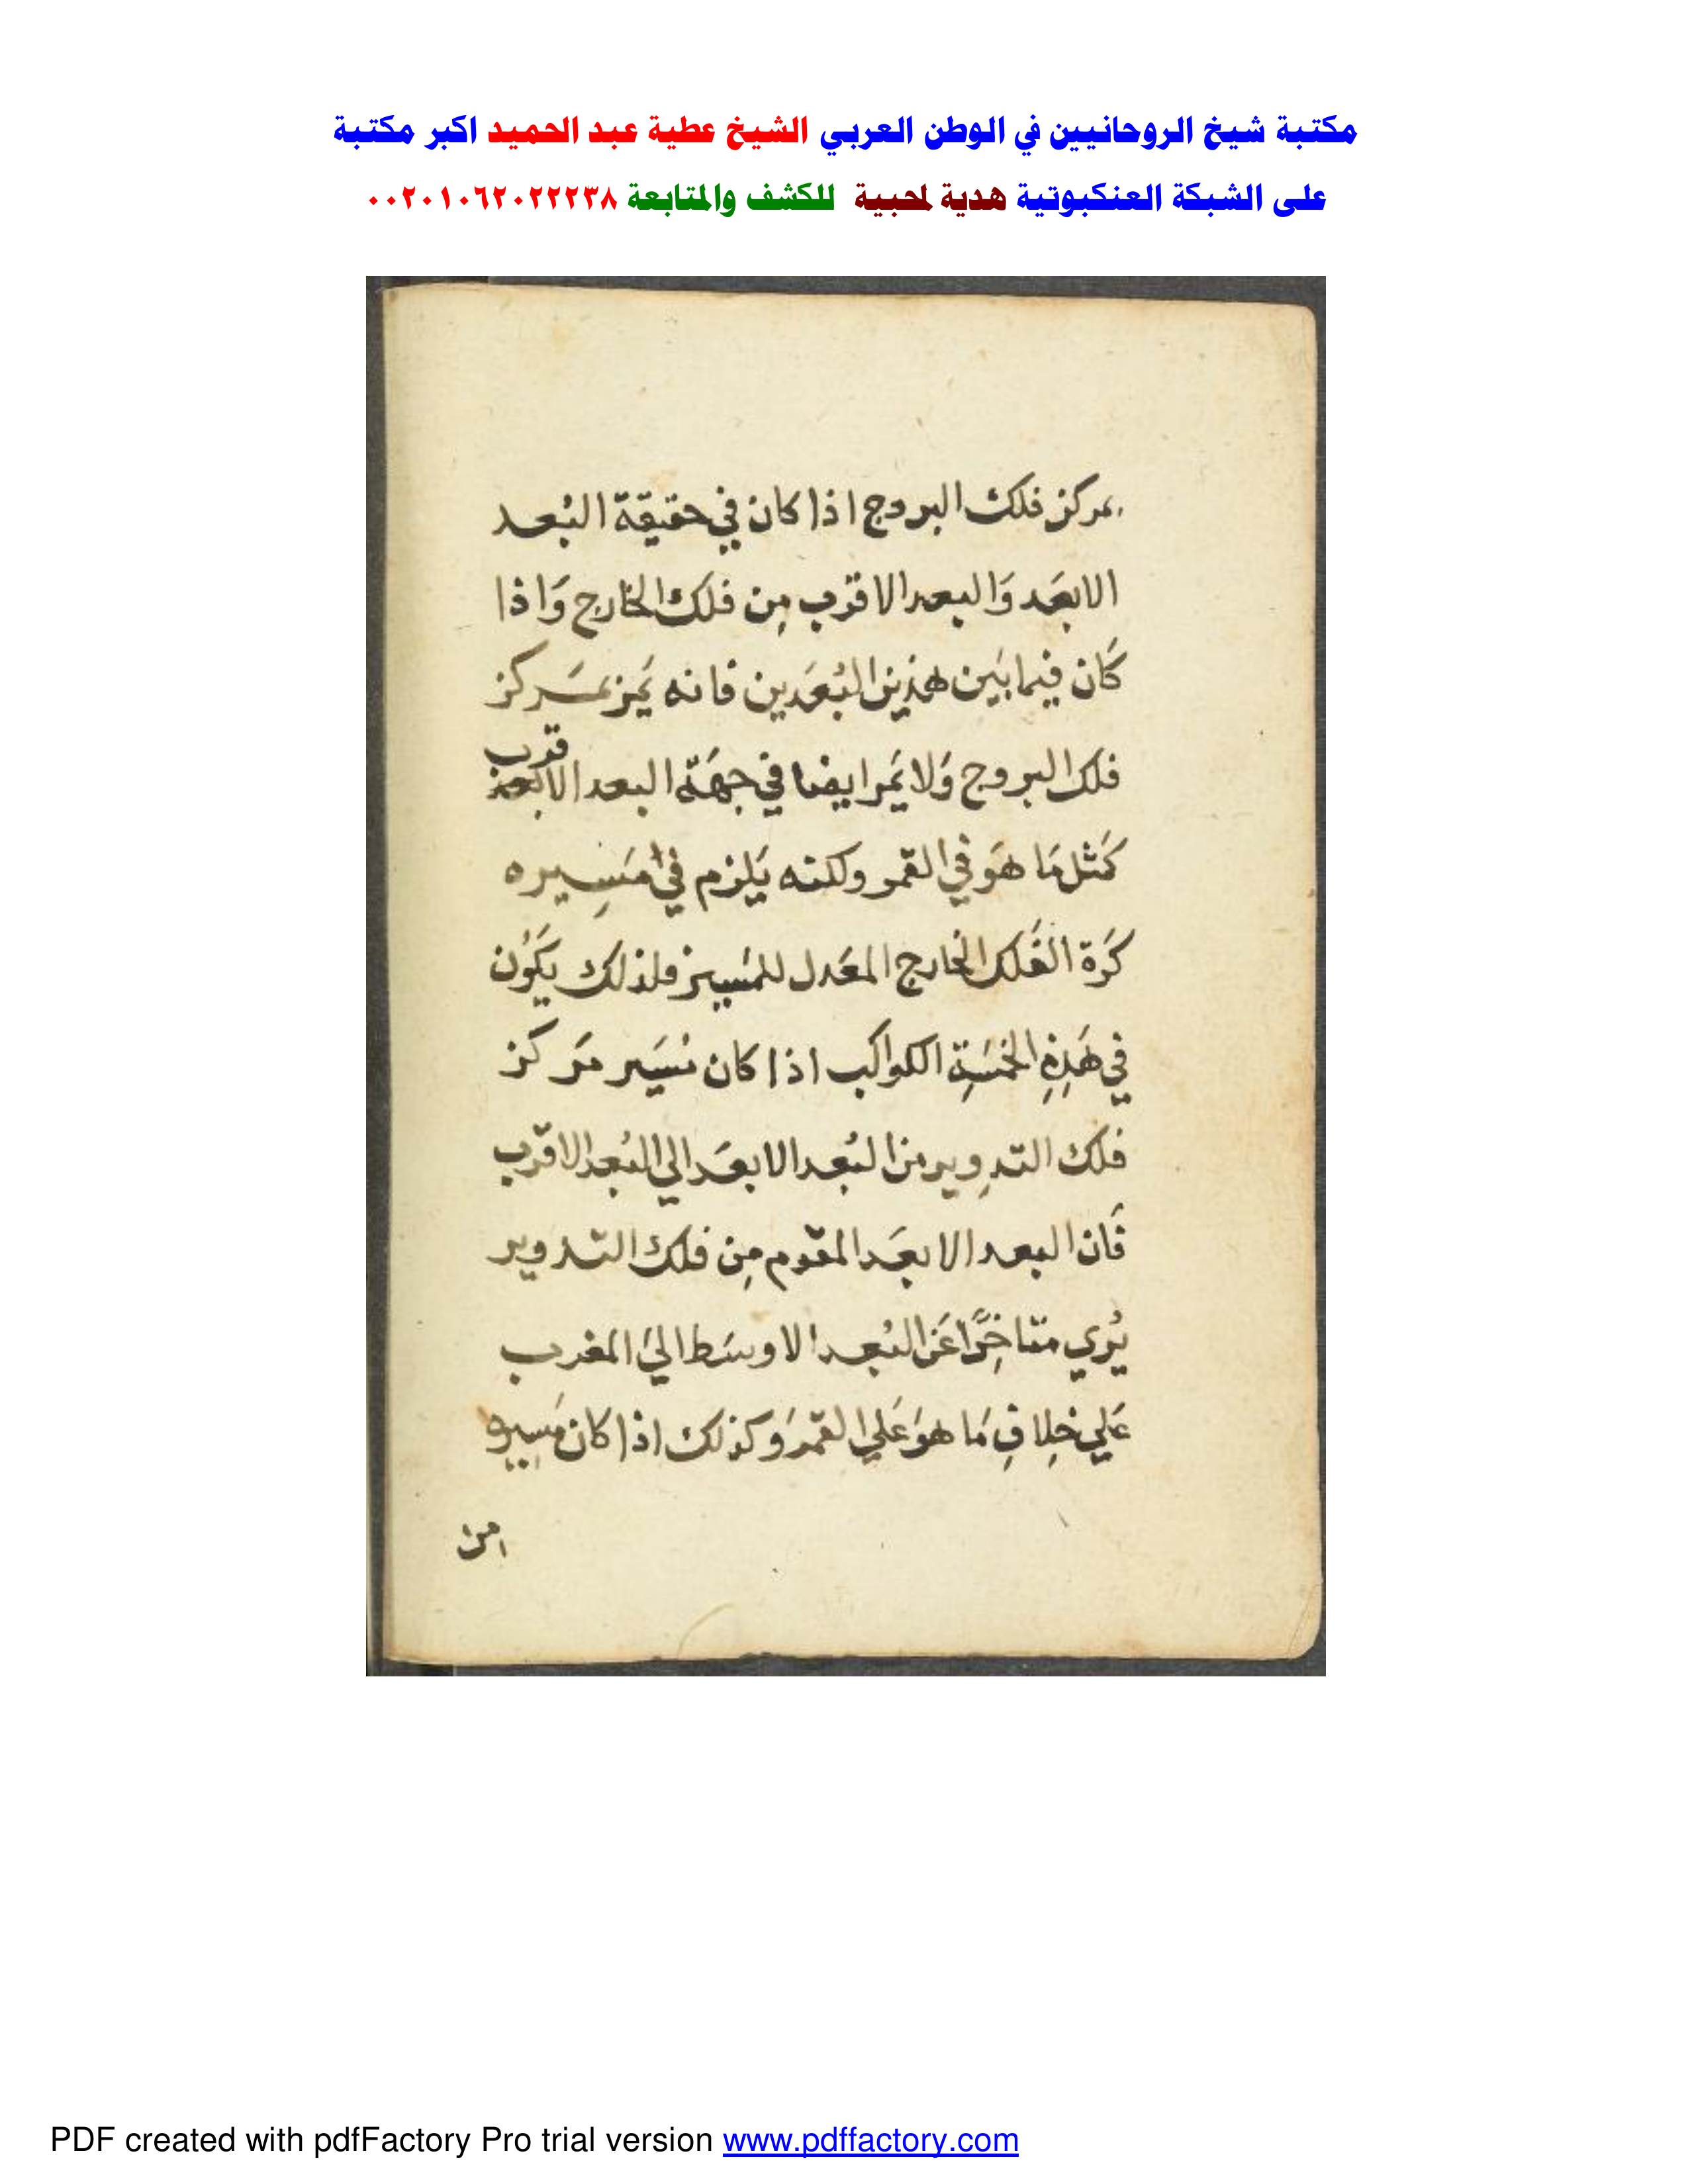 مكتبة شيخ الروحانيين في الوطن العربي الشيخ عطية عبد الحميد اكبر مكتبة
على الشبكة العنكبوتية هدية لمحبية للكشف والمتابعة ٠٠٢٠١٠٦٢٠٢٢٢٣٨
بمركز فلك البروج اذا كان في حقيقة البُعد
الابعَد وَالبعد الاقرب مِن فلك الخارج وَاذا
كَان فيما بَين هذين البُعَدين فانه يَمر بمَركز
قرب
فلك البروج وَلا يَمر ايضا في جهَة البعد الابعد
كَمثل مَا هوَ في القمر ولكنه يَلزم في مَسِيره
كَرة الفَلك الخارج المعَدل للمَسير فلذلك يَكوُن
في هَذِهِ الخمسَةِ الكواكب اذا كان مَسَير مَركز
فلك التدوِير من البُعد الابعَد الي البُعد الاقرب
فَان البعد الابعَد المقوم مِن فلك التدوير
يُري متاخِرًا عَن البُعد الاوسَط الي المغرب
عَلي خِلافِ مَا هوَ عَلي القمر وَكذلك اذا كان مَسيره
من
PDF created with pdfFactory Pro trial version www.pdffactory.com